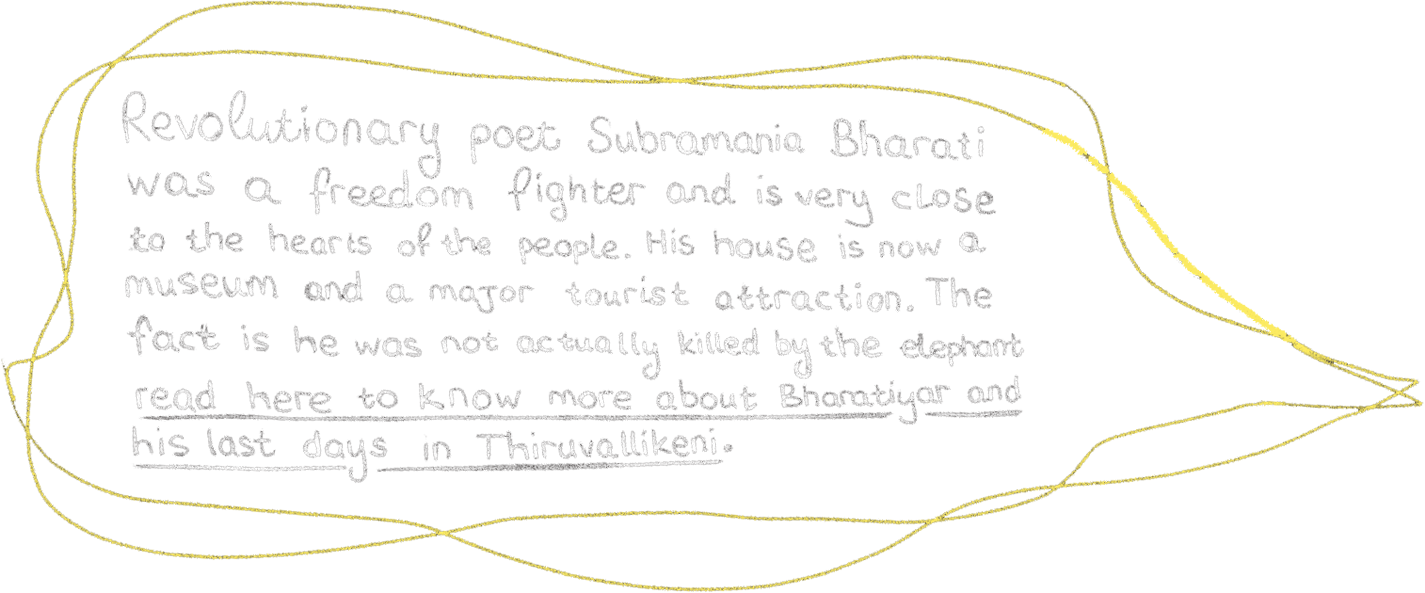 Revolutionary poet Subramania Bharati
was a freedom fighter and is very close
to the hearts of the people. His house is now a
museum and a major tourist attraction. The
fact is he was not actually killed by the elephant
read here to know more about Bharatiyar and
his last days in Thiruvallikeni.